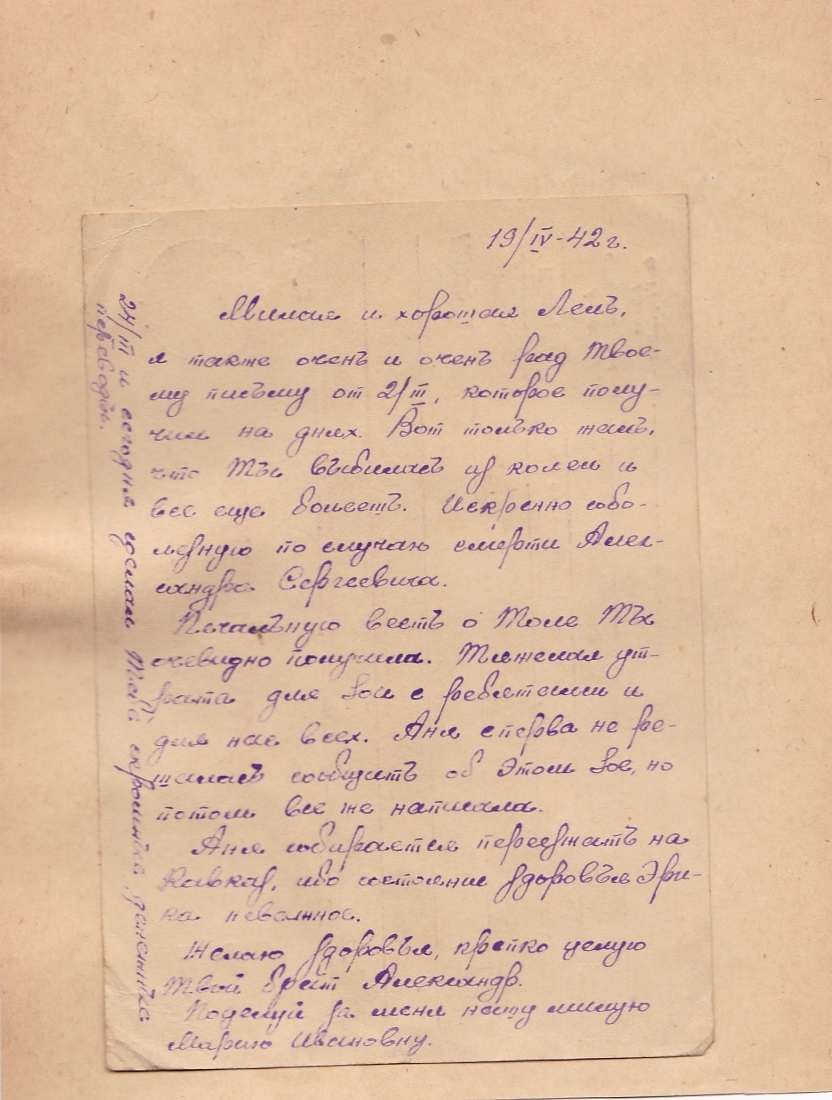 19/IV-42 г.
Милая и хорошая Лель,
я также очень и очень рад твое-
му письму от 2/III, которое полу-
чил на днях. Вот только жаль,
что Ты выбилась из колеи и
все еще болеешь. Искренно собо-
лезную по случаю смерти Алек-
сандра Сергеевича.
Печальную весть о Толе Ты
очевидно получила. Тяжелая ут-
рата для Зои с ребятами и
для нас всех. Аня сперва не ре-
шалась сообщить об этом Зое, но
потом все же написала.
Аня собирается переезжать на
Кавказ, ибо состояние здоровья Эри-
ка неважное.
Желаю здоровья, крепко целую
Твой брат Александр.
Поцелуй за меня нашу милую
Марию Ивановну.
24/III и сегодня сделал Тебе скромные денежные
переводы.